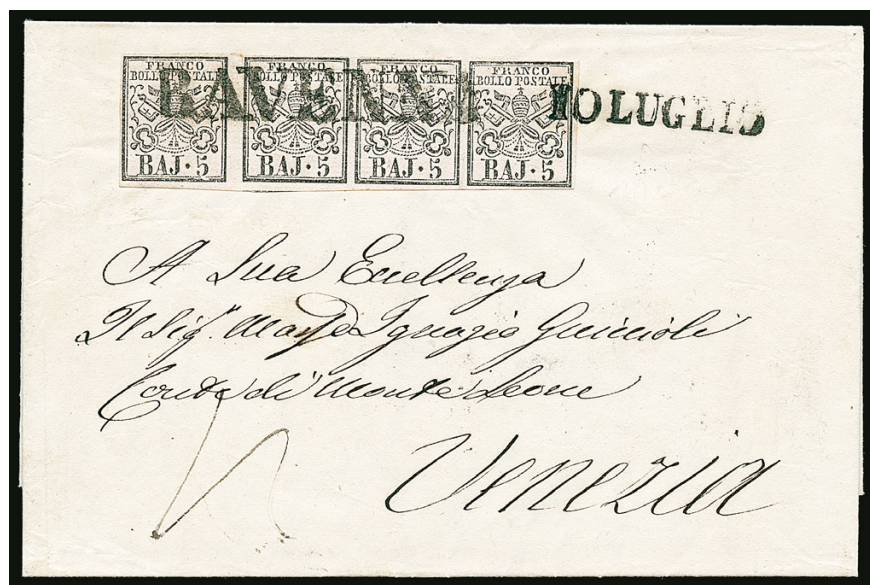 FRANCO BOLLO POSTALE BAJ·5
FRANCO BOLLO POSTALE BAJ·5
FRANCO BOLLO POSTALE BAJ·5
FRANCO BOLLO POSTALE BAJ·5
RAVENNA 10 LUGLIO
A Sua Eccellenza
Il Sigr. March Ignazio Guiccioli
Conte di Monte Leone
Venezia